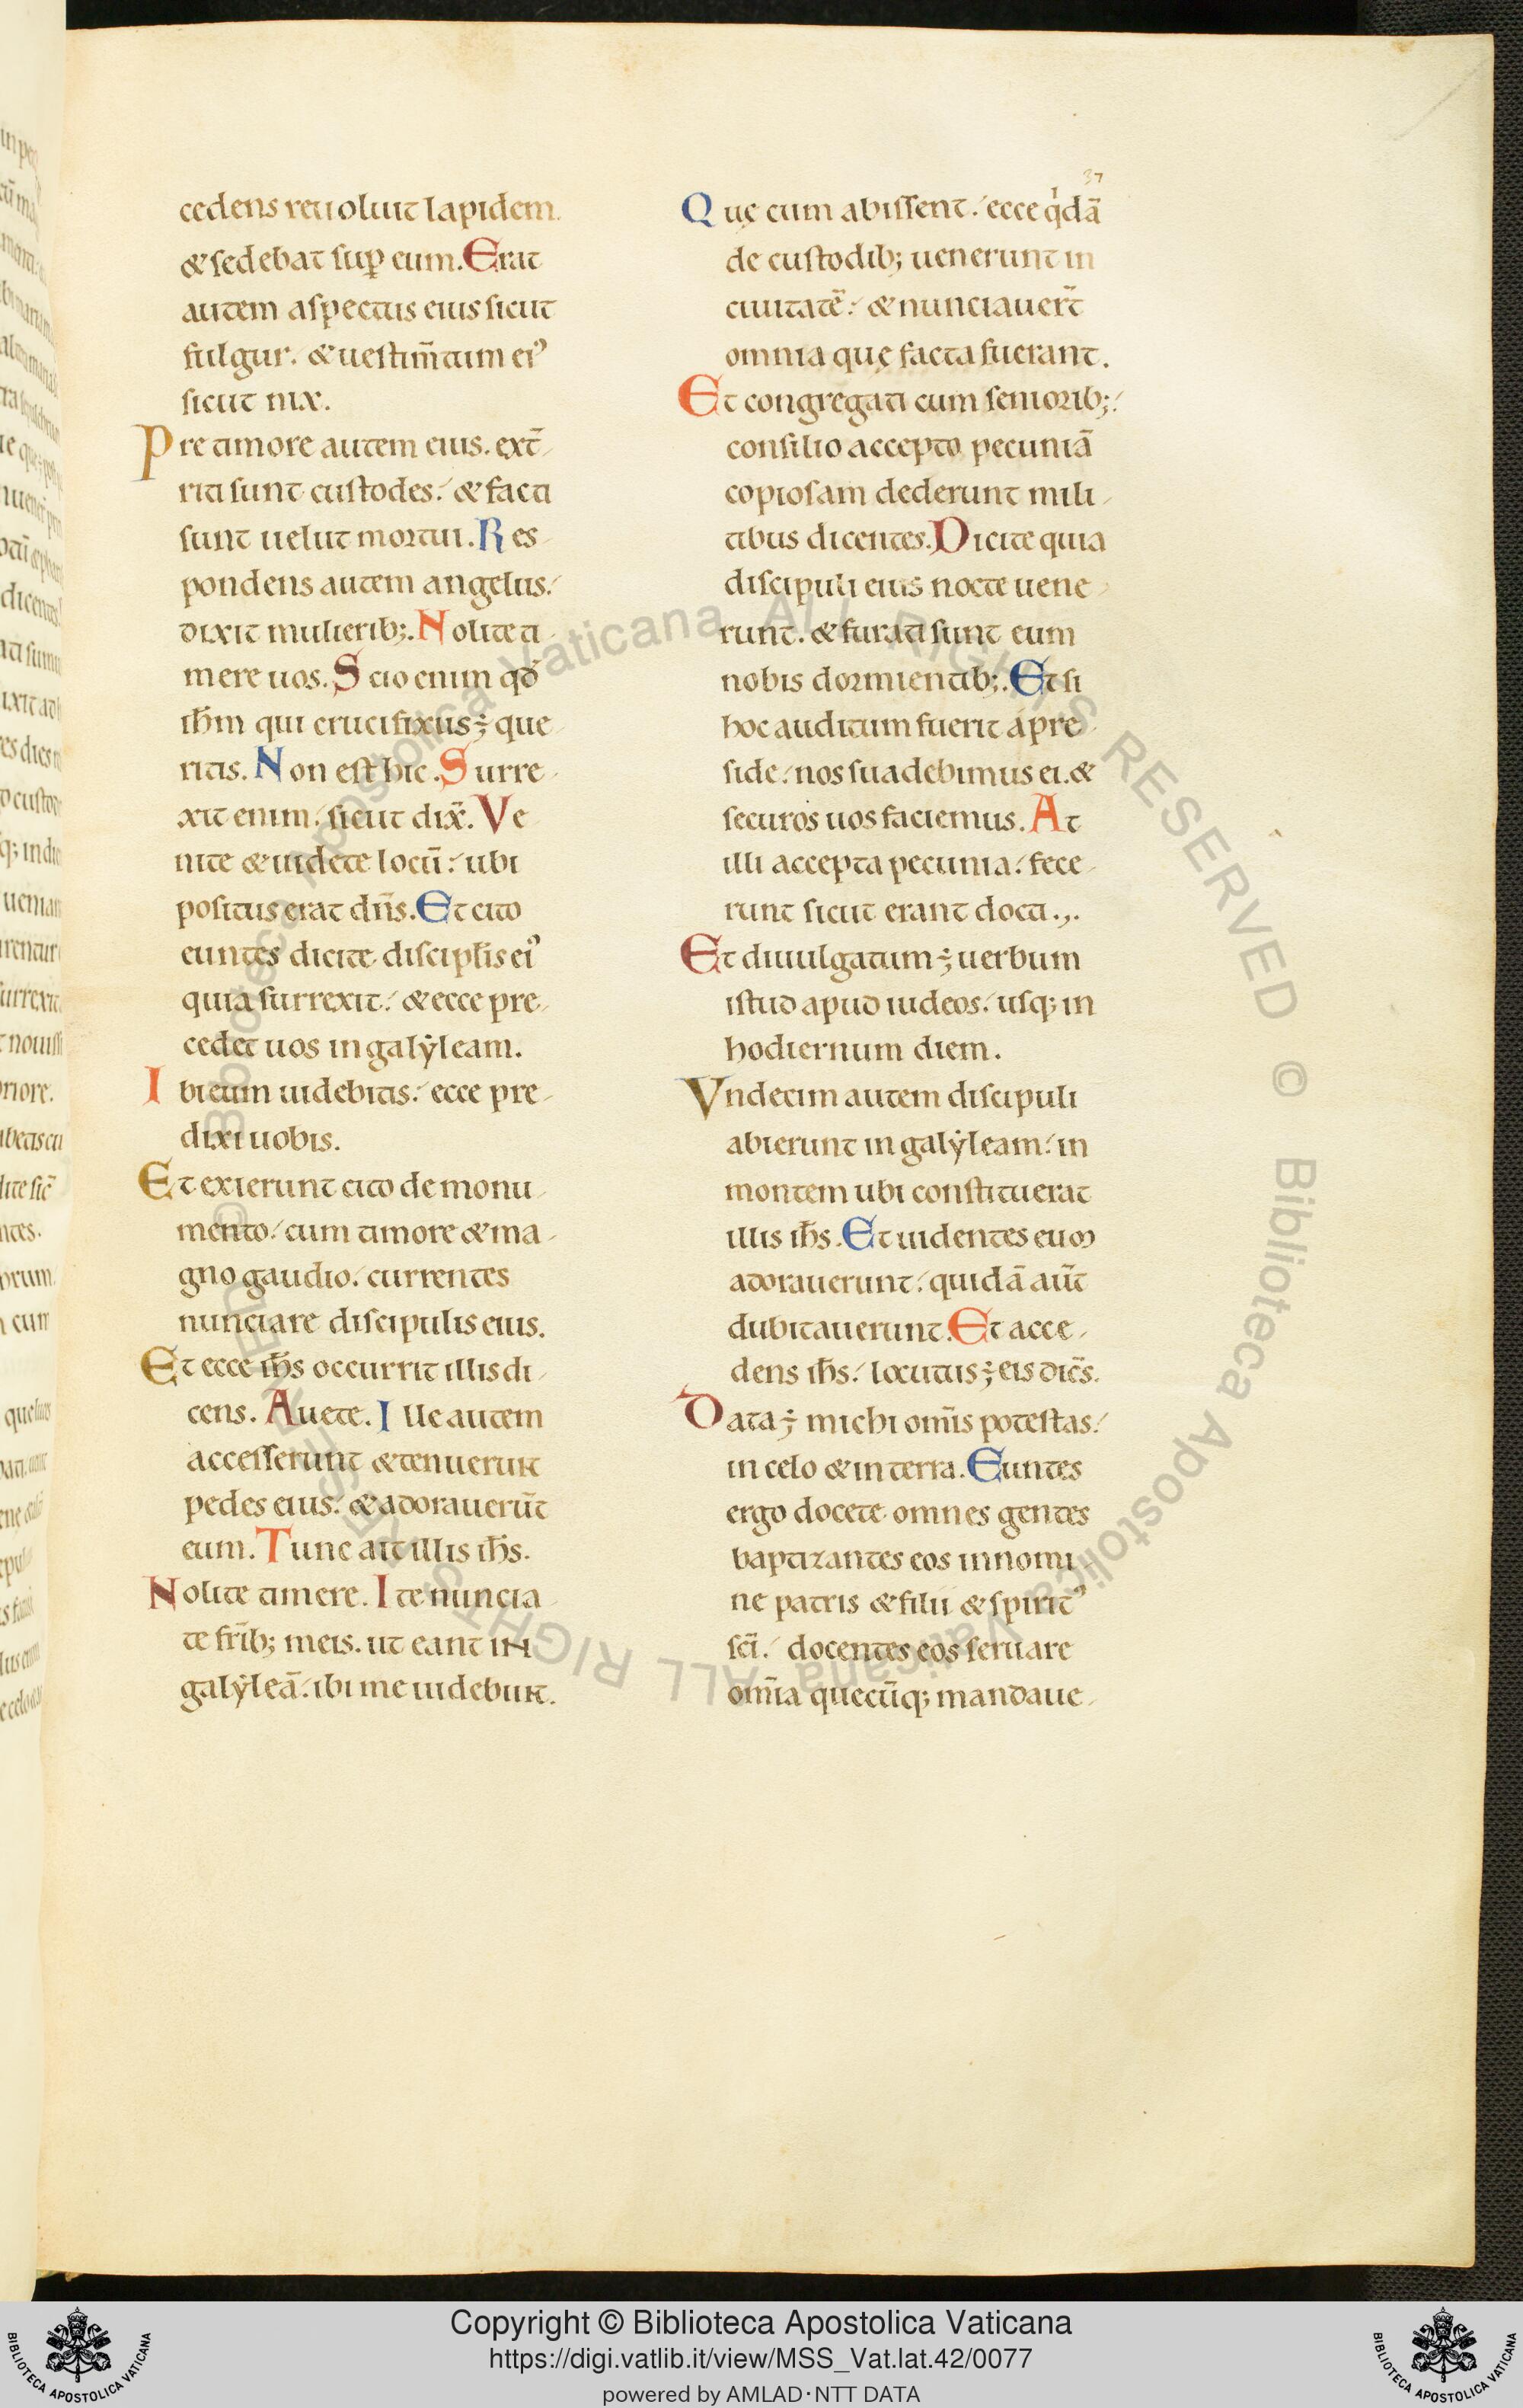 37
cedens reuoluit lapidem.
& sedebat sup̲ eum. Erat
autem aspectus eius sicut
fulgur. & uestim̄tum ei᾽
sicut nix.
Pre timore autem eius. ext̄
riti sunt custodes. & facti
sunt uelut mortui. Res
pondens autem angelus.
dixit mulierib;. Nolite ti
mere uos. Scio enim qd̄
ih̄m qui crucifixus ÷ que
ritis. Non est hic. Surre
xit enim. sicut dix̄. Ve
nite & uidete locū. ubi
positus erat dn̄s. Et cito
euntes dicite discipl̄is ei᾽
quia surrexit. & ecce pre
cedet uos in galẏleam.
Ibi eum uidebitis. ecce pre
dixi uobis.
Et exierunt cito de monu
mento. cum timore & ma
gno gaudio. currentes
nunciare discipulis eius.
Et ecce ih̄s occurrit illis di
cens. Auete. Ille autem
accesserunt & tenuerunt
pedes eius. & adorauerūt
eum. Tunc ait illis ih̄s.
Nolite timere. Ite nuncia
te fr̄ib; meis. ut eant in
galẏleā. ibi me uidebunt.
Quę cum abissent. ecce qͥdā
de custodib; uenerunt in
ciuitatē. & nunciauer̄t
omnia quę facta fuerant.
Et congregati cum seniorib;.
consilio accepto pecuniā
copiosam dederunt mili
tibus dicentes. Dicite quia
discipuli eius nocte uene
runt. & furati sunt eum
nobis dormientib;. Et si
hoc auditum fuerit a pre
side. nos suadebimus ei. &
securos uos faciemus. At
illi accepta pecunia. fece
runt sicut erant docti.,.
Et diuulgatum ÷ uerbum
istud apud iudeos. usq; in
hodiernum diem.
Vndecim autem discipuli
abierunt in galẏleam. in
montem ubi constituerat
illis ih̄s. Et uidentes eum
adorauerunt. quidā aūt
dubitauerunt. Et acce
dens ih̄s. locutus ÷ eis dic̄s.
Data ÷ michi om̄is potestas.
in celo & in terra. Euntes
ergo docete omnes gentes
baptizantes eos in nomi
ne patris & filii & spirit᾽
sc̄i. docentes eos seruare
om̄ia quecūq; mandaue
Copyright © Biblioteca Apostolica Vaticana
https://digi.vatlib.it/view/MSS_Vat.lat.42/0077
powered by AMLAD·NTT DATA
BIBLIOTECA APOSTOLICA VATICANA
BIBLIOTECA APOSTOLICA VATICANA